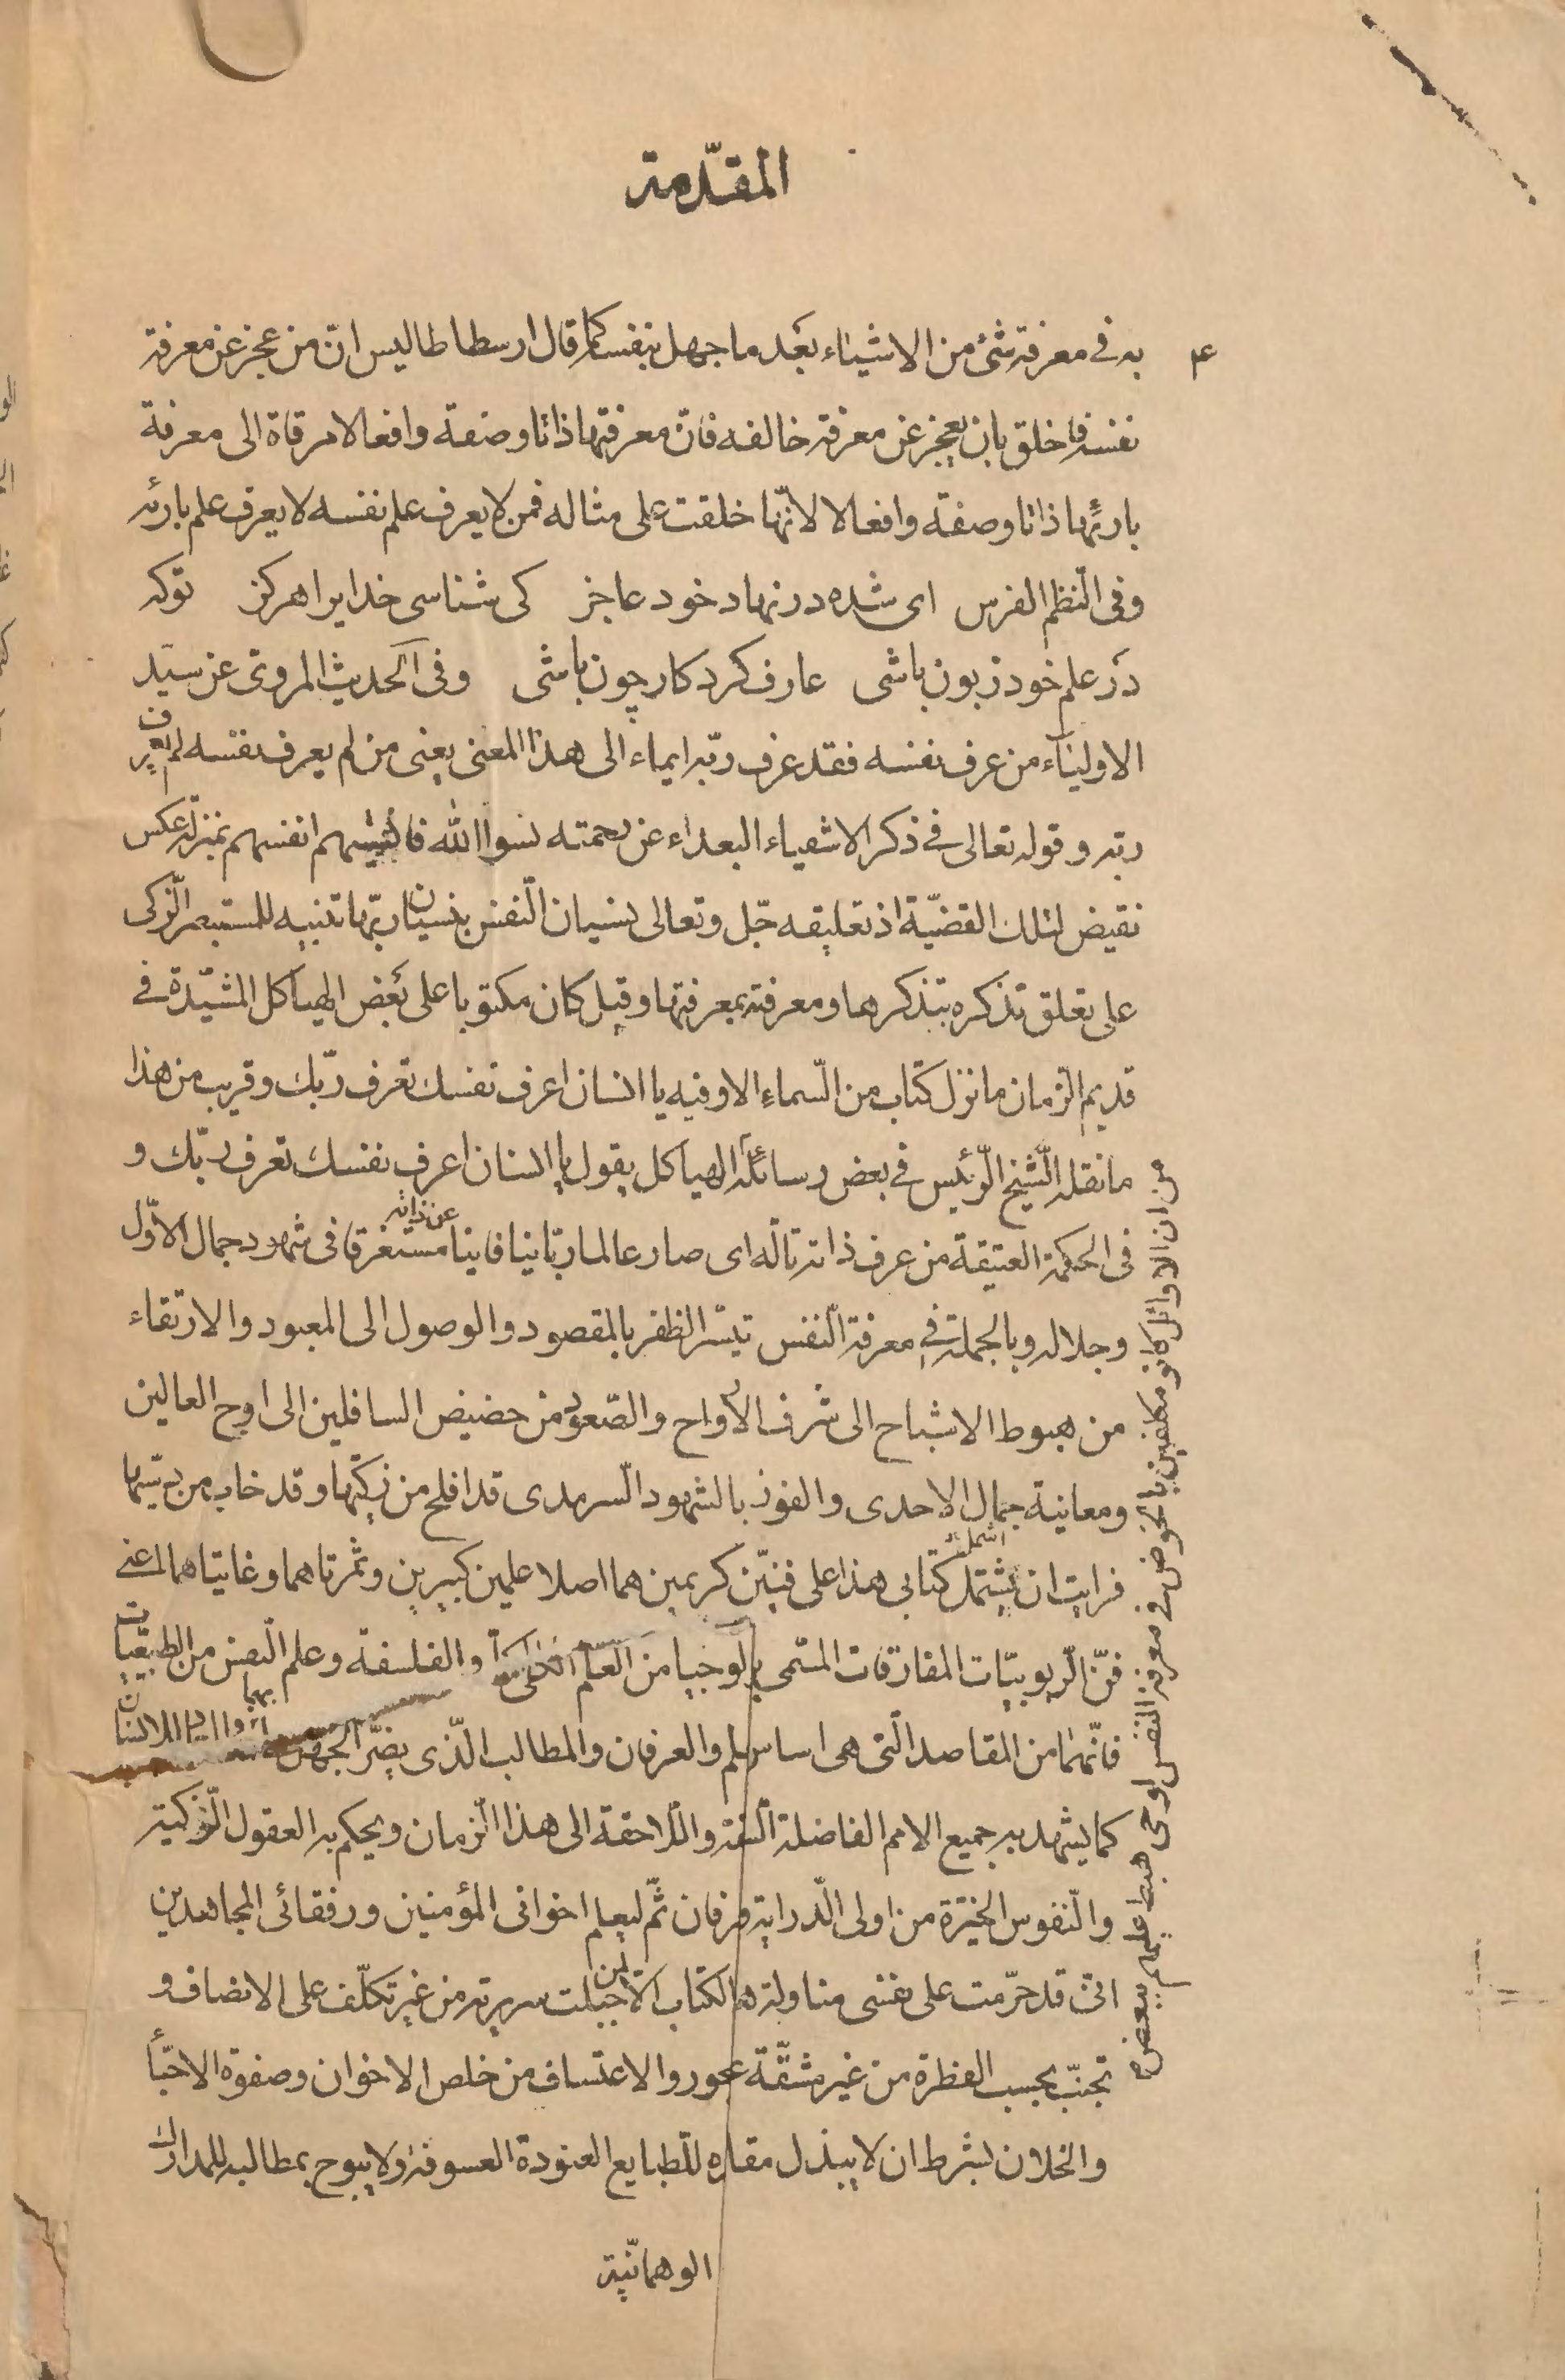 المقدّمة
۴
به في معرفة شئ من الاشياء بعد ما جهل بنفسه كما قال ارسطاطاليس انّ من عجز عن معرفة
نفسه فاخلق بان يعجز عن معرفة خالقه فانّ معرفتها ذاتا وصفة وافعالا مرقاة الى معرفة
بارئها ذاتا وصفة وافعالا لانّها خلقت على مثاله فمن لا يعرف علم نفسه لا يعرف علم بارئه
وفى النّظم الفرس اى شده در نهاد خود عاجز كى شناسى خدايرا هركز توكه
در علم خود زبون باشى عارف كردكار چون باشى وفى الحديث المروىّ عن سيّد
الاولياء من عرف نفسه فقد عرف ربّه ايماء الى هذا المعنى يعنى من لم يعرف نفسه لم يعرف
ربّه و قوله تعالى في ذكر الاشقياء البعداء عن رحمته نسوا الله فانسيهم انفسهم بمنزلة عكس
نقيض لتلك القضيّة اذ تعليقه جلّ وتعالى نسيان النّفس بنسيان ربّها تنبيه للمستبصر الزّكى
على تعلق تذكره بتذكرها ومعرفته بمعرفتها وقيل كان مكتوبا على بعض الهياكل المشيّدة في
قديم الزّمان ما نزل كتاب من السّماء الا وفيه يا انسان اعرف نفسك تعرف ربّك وقريب من هذا
ما نقله الشّيخ الرّئيس في بعض رسائله الهياكل يقول يا انسان اعرف نفسك تعرف ربّك و
فى الحكمة العتيقة من عرف ذاته تالّه اى صار عالما ربّانيا فانيا عن ذاته مستغرقا فى شهود جمال الاوّل
وجلاله وبالجملة في معرفة النّفس تيسّر الظفر بالمقصود والوصول الى المعبود والارتقاء
من هبوط الاشباح الى شرف الارواح والصّعود من حضيض السافلين الى اوج العالين
ومعاينة جمال الاحدى والفوز بالشهود السّرمدى قد افلح من زكّيها وقد خاب من دسّيها
فرايت ان يشتمل كتابى هذا على فنّين كريمين هما اصلا علمين كبيرين وثمرتاهما وغايتاهما اعنى
فنّ الرّبوبيّات المفارقات المسّمى باثولوجيا من العلم الكلى والفلسفة وعلم النّفس من الطبيعيّات
فانّهما من المقاصد الّتى هى اساس العلم والعرفان والمطالب الّذى يضرّ الجهل بهما
كما يشهد به جميع الامم الفاضلة السابقة واللّاحقة الى هذا الزّمان ويحكم به العقول الزّكية
والنّفوس الخيّرة من اولى الدّراية والعرفان ثمّ ليعلم اخوانى المؤمنين ورفقائى المجاهدين
انّى قد حرّمت على نفسى مناولة هذا الكتاب الّا لمن جبلت سريرته من غير تكلّف على الانصاف و
تجنّب بحسب الفطرة من غير مشقّة عن الجور والاعتساف من خلص الاخوان وصفوة الاحبّاء
والخلان بشرط ان لا يبذل مقاله للطّبايع العنودة العسوفة ولا يبوح بمطالبه للمدارك
الوهمانيّة
من ان الاوائل كانوا مكلفين بالخوض في معرفة النفس لوحى هبط عليهم ببعض